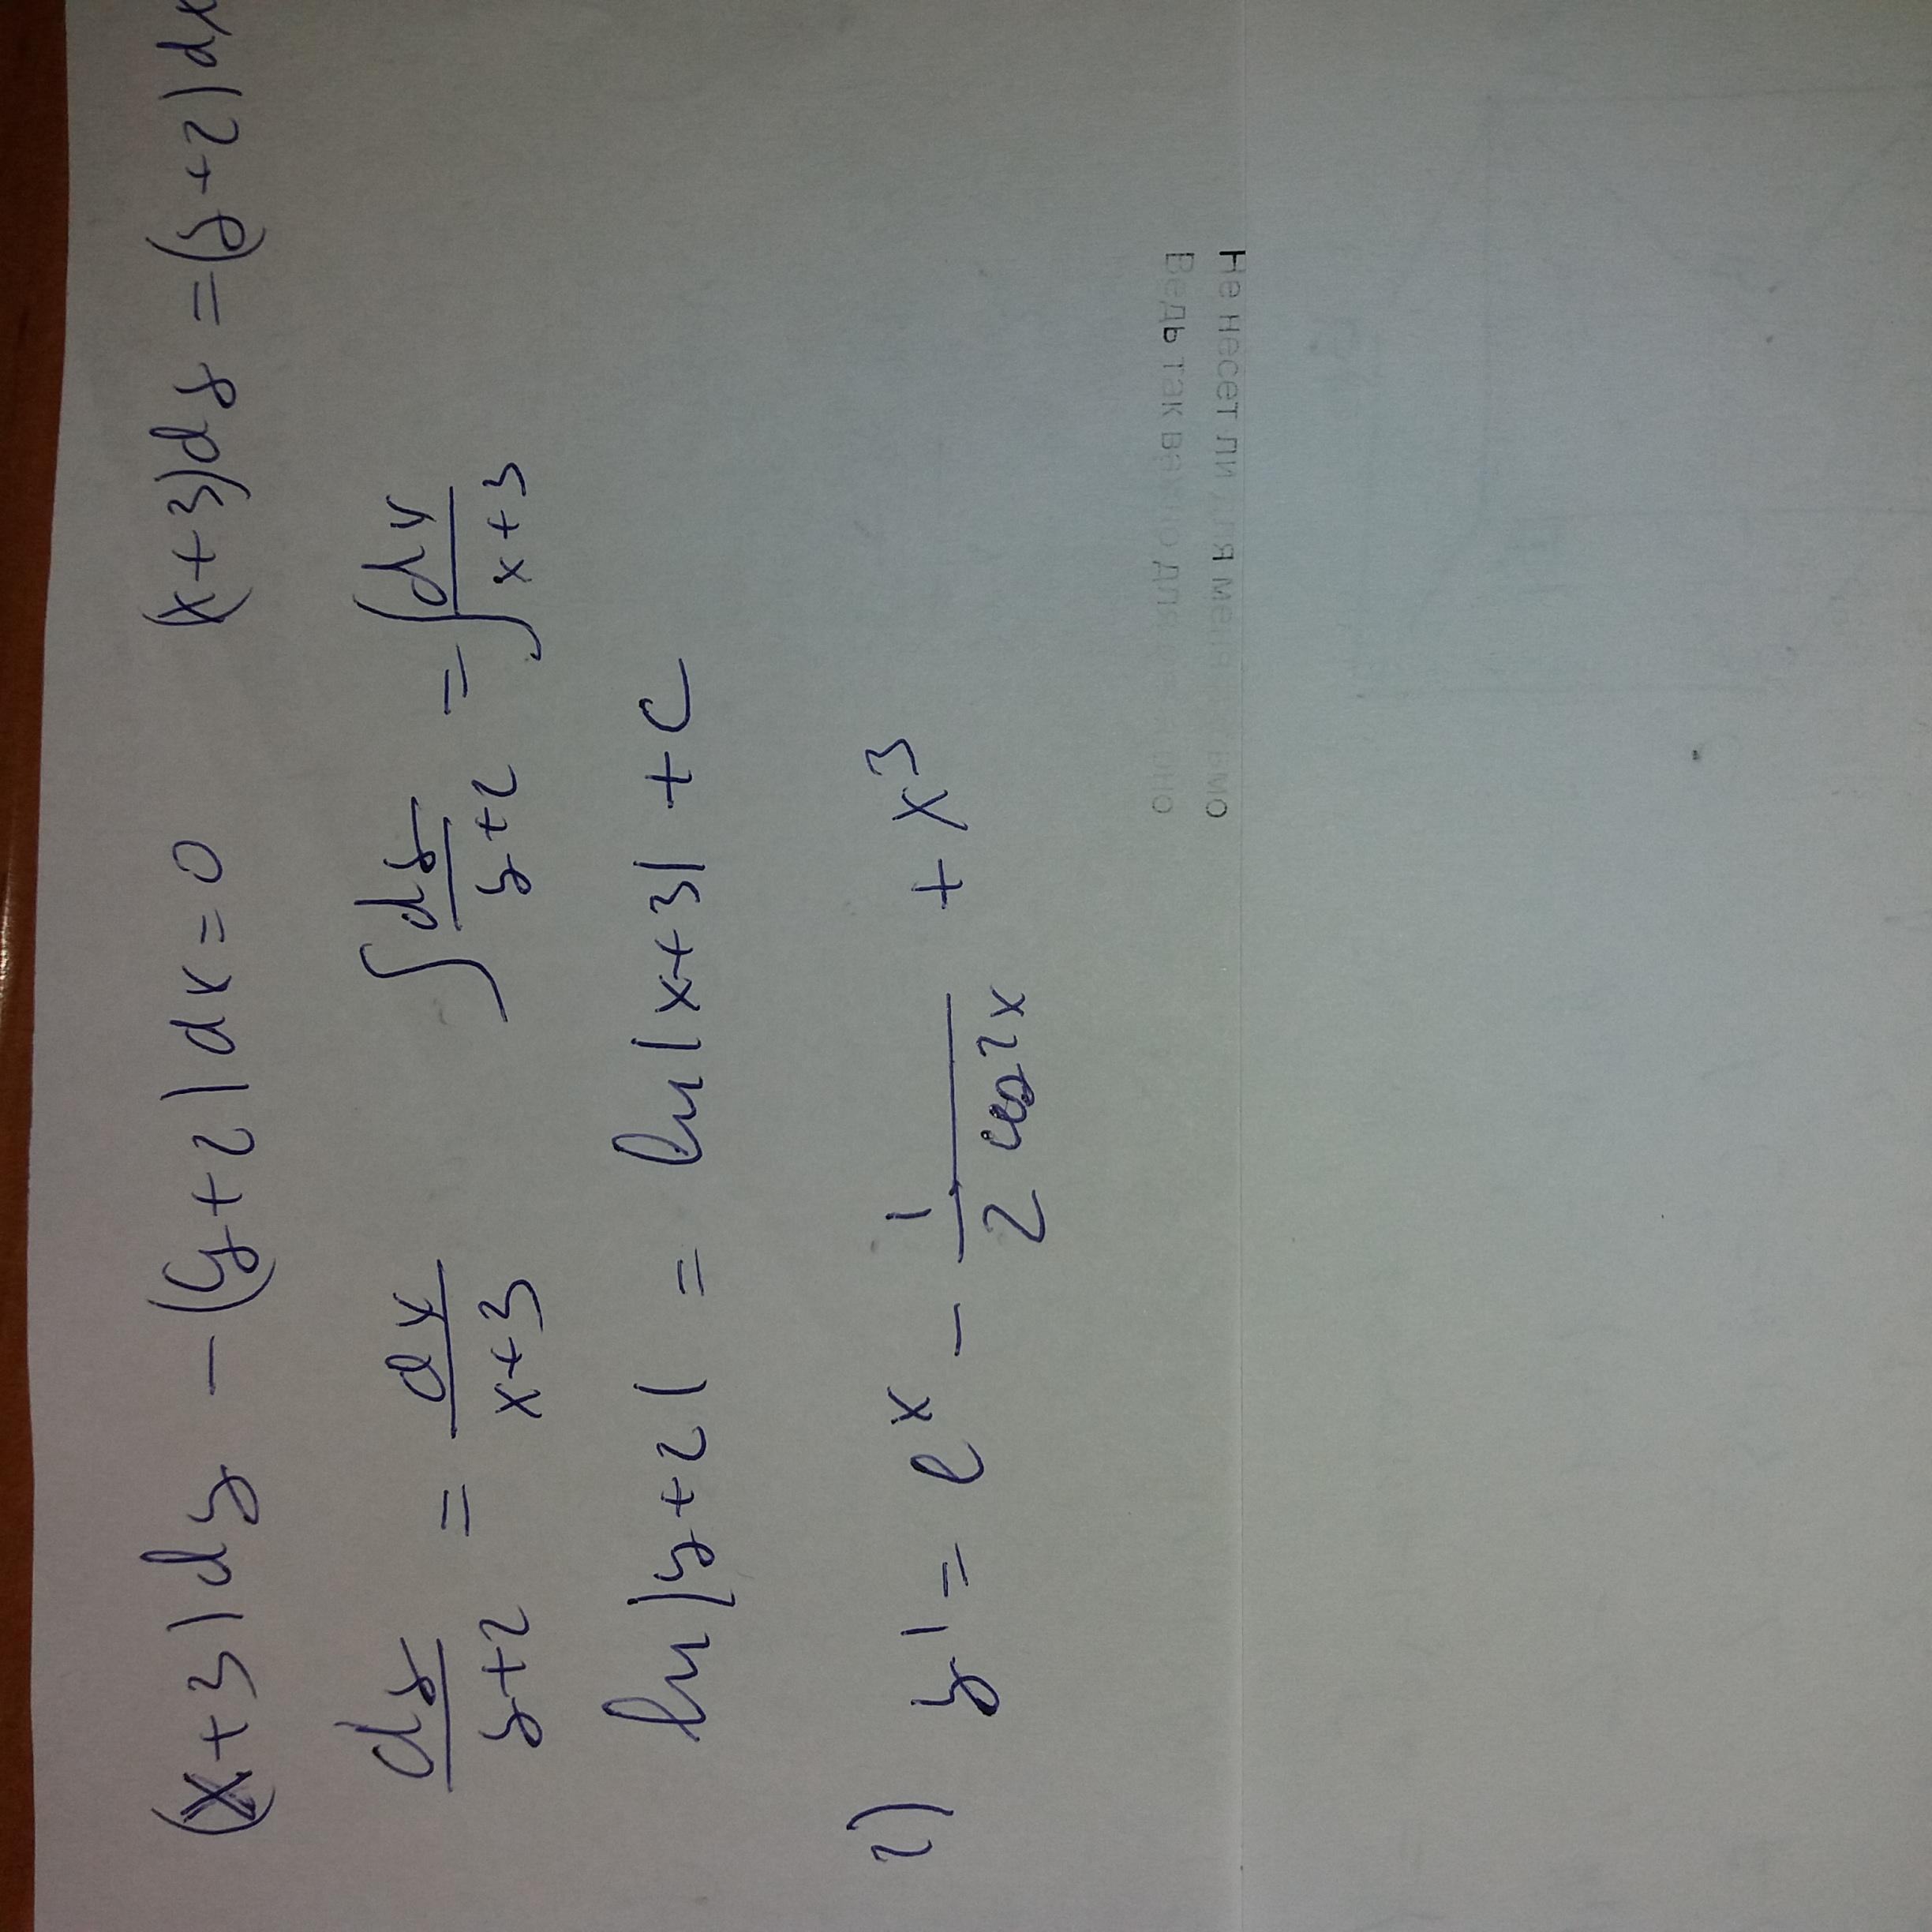 (x+3)dy - (y+2)dx=0 (x+3)dy =(y+2)dx
dy/y+2 = dx/x+3 ∫dy/y+2 = ∫dx/x+3
ln|y+2| = ln|x+3| + C
2) y' = e^x - 1/2cos2x + x^3
Не несет ли для меня
Ведь так важно для